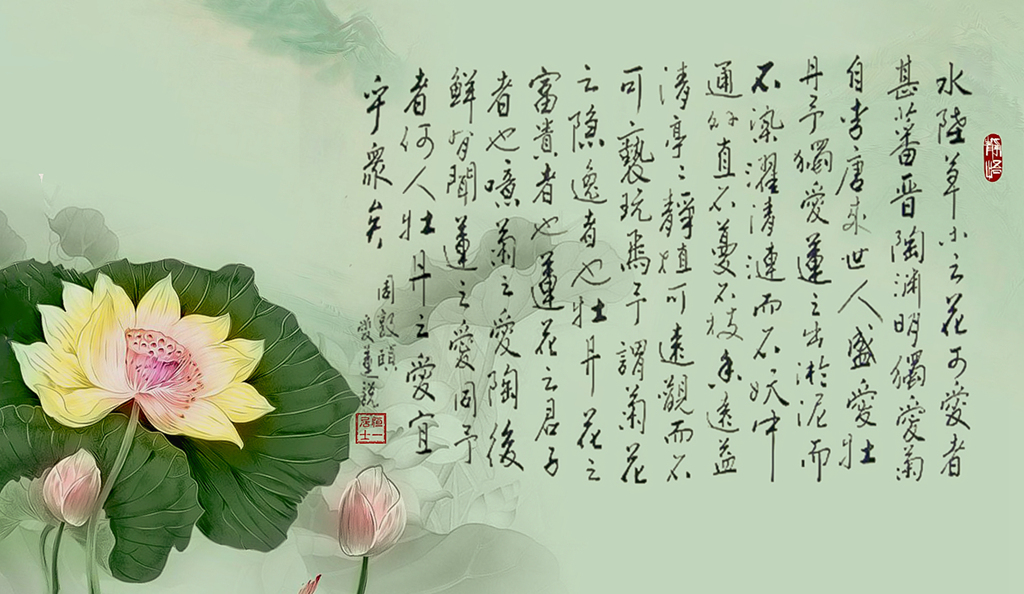 水陸草木之花可愛者
甚蕃晋陶渊明獨愛菊
自李唐来世人盛愛牡
丹予獨愛蓮之出淤泥而
不染濯清漣而不妖中
通外直不蔓不枝香遠益
清亭〻靜植可遠觀而不
可褻玩焉予謂菊花
之隐逸者也牡丹花之
富貴者也蓮花之君子
者也噫菊之愛陶後
鮮有聞蓮之愛同予
者何人牡丹之愛宜
乎衆矣
周敦頤
愛蓮説
恒一居士